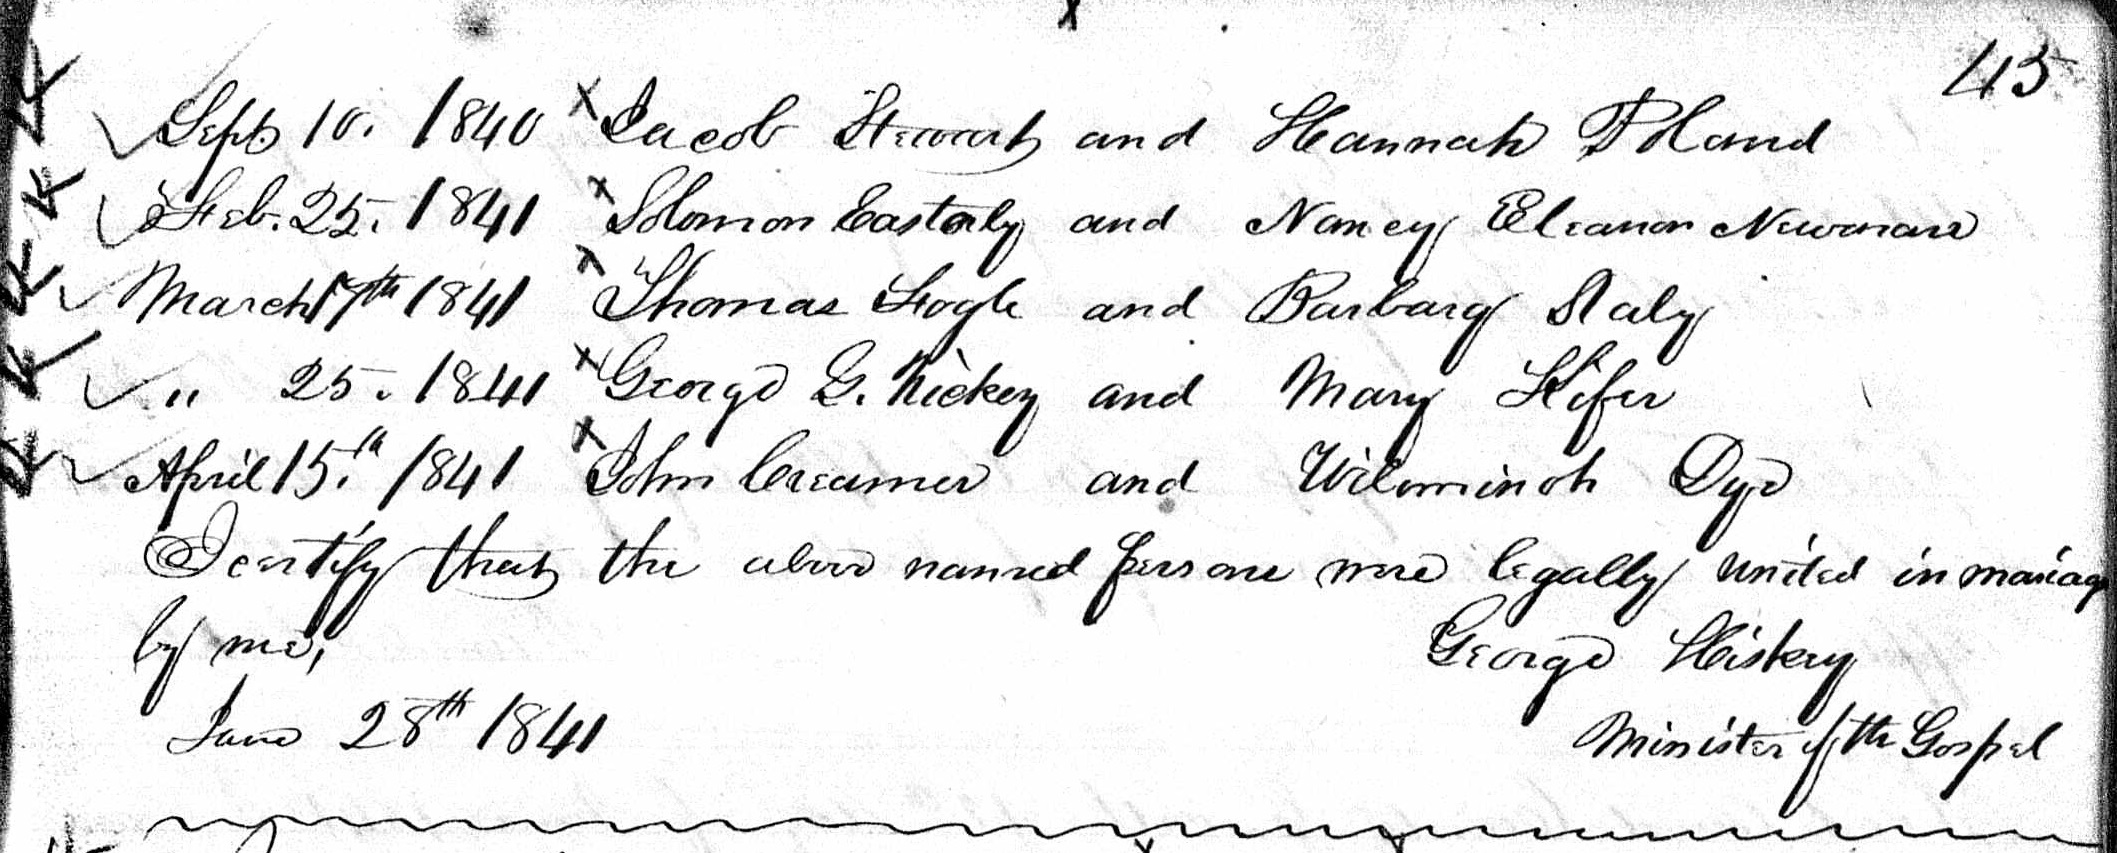 45
Sept 10. 1840 x Jacob Stewart and Hannah Poland
Feb. 25. 1841 x Solomon Easterly and Nancy Eleanor Newman
March 17th 1841 x Thomas Fogle and Barbary Staly
" 25. 1841 x George G. Hickey and Mary Kifer
April 15.th 1841 x John Creamer and Dye
I certify that the above named persons were legally united in mariage
by me, George Hiskey
June 28th 1841 Minister of the Gospel